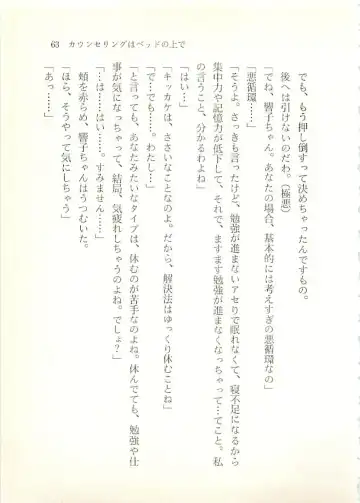 63　カウンセリングはベッドの上で
でも、もう押し倒すって決めちゃったんですもの。
後へは引けないのだわ。（極悪）
「でね、響子ちゃん。あなたの場合、基本的には考えすぎの悪循環なの」
「悪循環……」
「そうよ。さっきも言ったけど、勉強が進まないアセりで眠れなくて、寝不足になるから
集中力や記憶力が低下して、それで、ますます勉強が進まなくなっちゃって…てこと。私
の言うこと、分かるわよね」
「はい…」
「キッカケは、ささいなことなのよ。だから、解決法はゆっくり休むことね」
「で…でも……。わたし…」
「と言っても、あなたみたいなタイプは、休むのが苦手なのよね。休んでても、勉強や仕
事が気になっちゃって、結局、気疲れしちゃうのよね。でしょ？」
「…は……はい…。すみません……」
頬を赤らめ、響子ちゃんはうつむいた。
「ほら、そうやって気にしちゃう」
「あっ……」